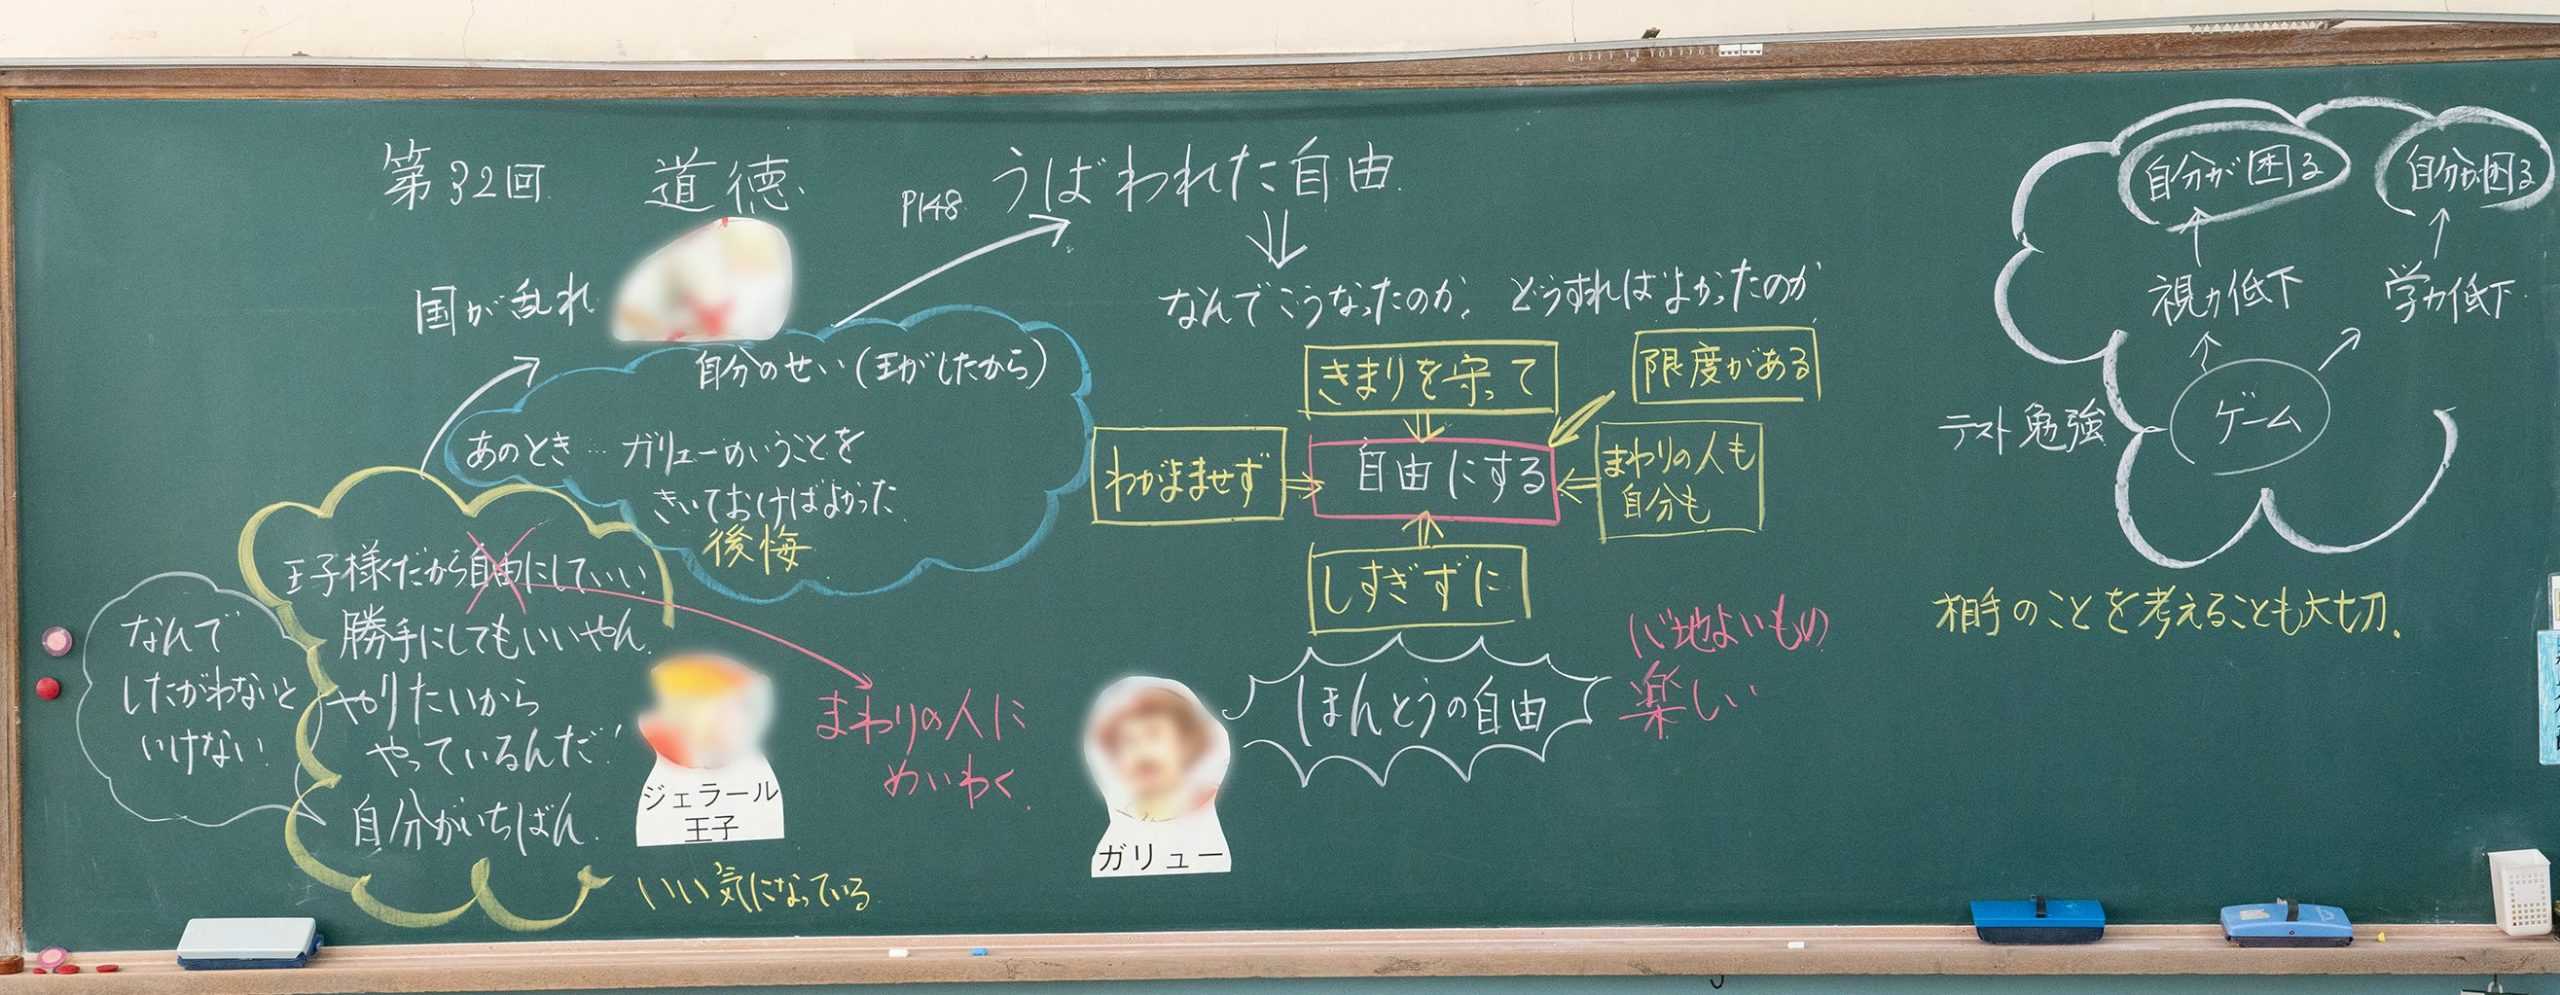 第32回 道徳 P148 うばわれた自由
国が乱れ
自分のせい(王がしたから)
あのとき… ガリューのいうことを
きいておけばよかった
後悔
王子様だから自由にしていい
勝手にしてもいいやん
やりたいから
やっているんだ!
自分がいちばん
なんで
したがわないと
いけない
いい気になっている
ジェラール
王子
まわりの人に
めいわく
なんでこうなったのか、どうすればよかったのか
きまりを守って
限度がある
わがままませず
自由にする
まわりの人も
自分も
しすぎずに
ガリュー
ほんとうの自由
心地よいもの
楽しい
自分が困る 自分が困る
視力低下 学力低下
テスト勉強
ゲーム
相手のことを考えることも大切.